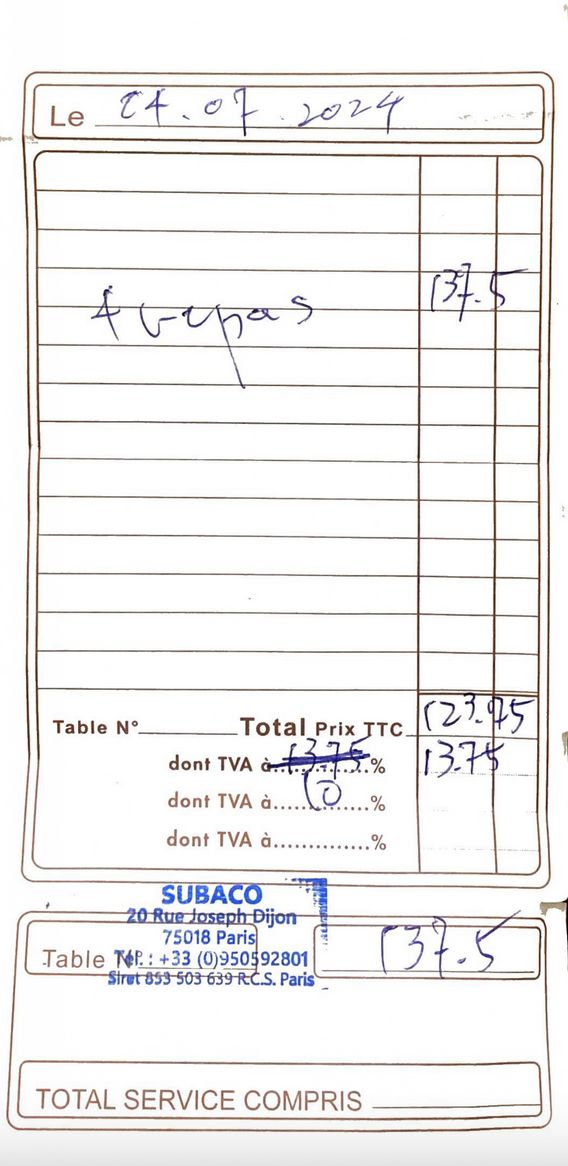 Le 24.07.2024
4 repas 137.5
Table N° Total Prix TTC 123.75
dont TVA à 13.75 % 13.75
dont TVA à 10 %
dont TVA à %
SUBACO
20 Rue Joseph Dijon
75018 Paris
Table N°
Tél. : +33 (0)950592801
137.5
Siret 853 503 639 R.C.S. Paris
TOTAL SERVICE COMPRIS